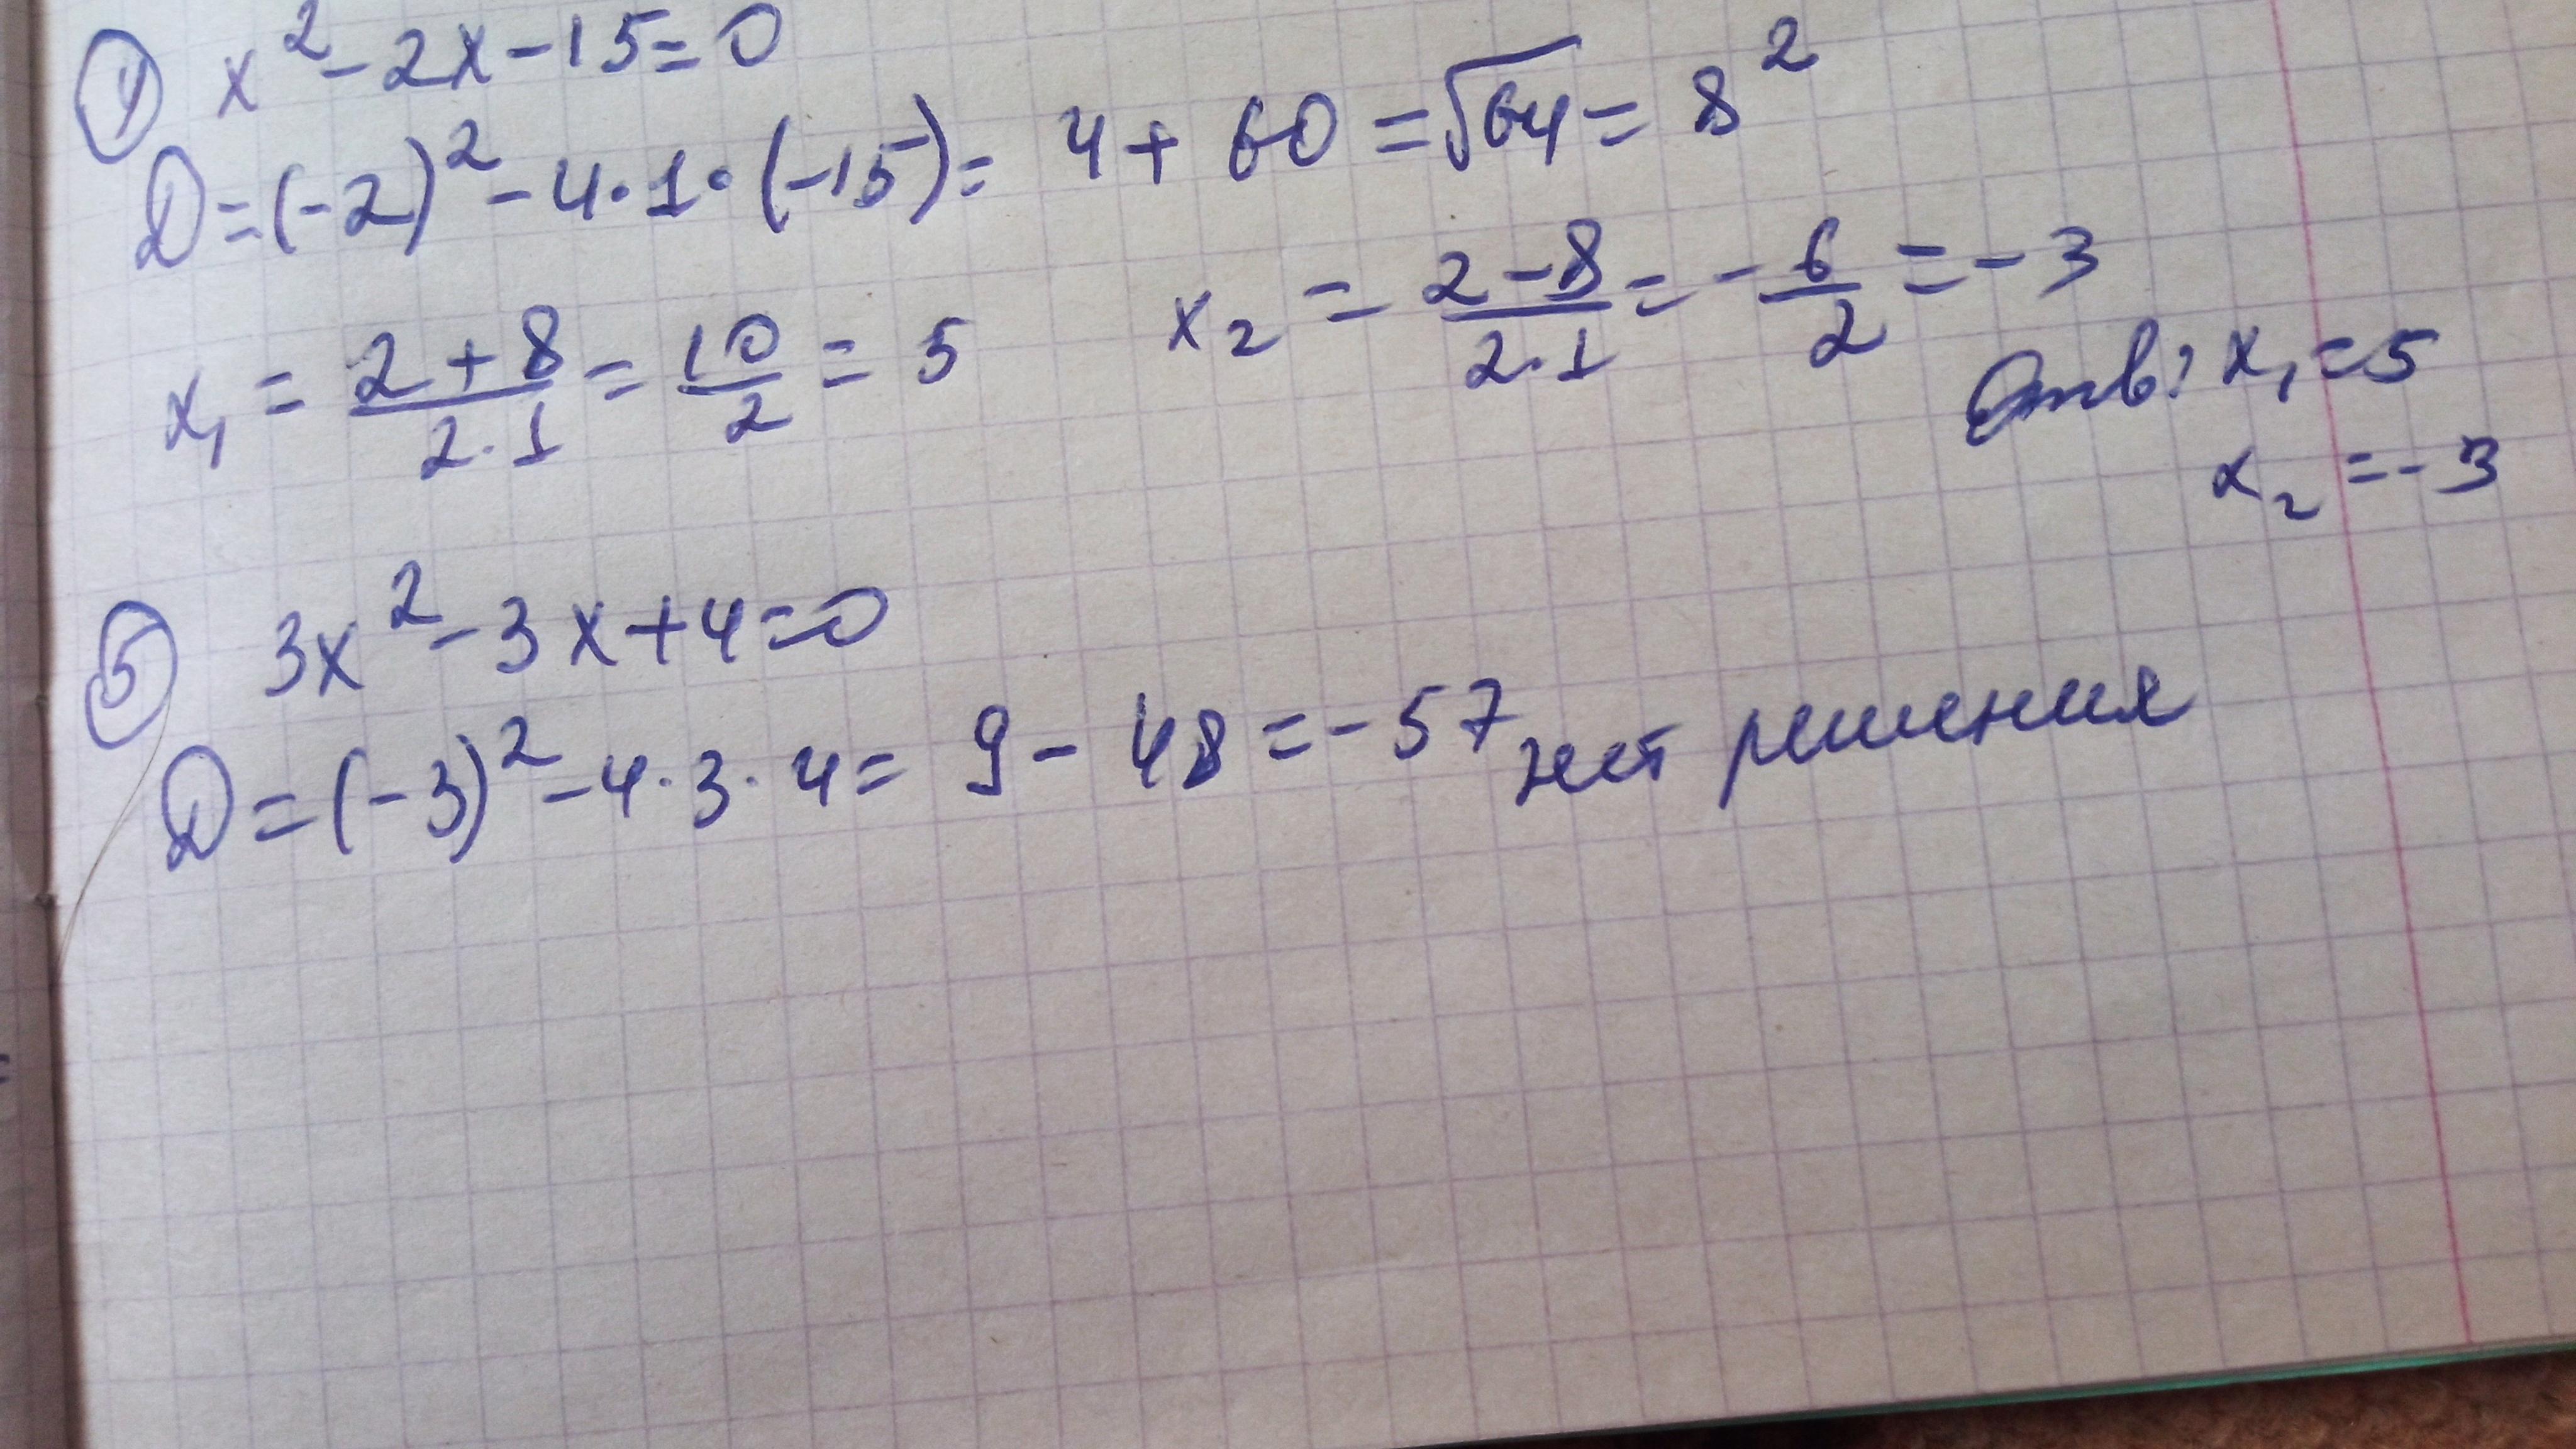 ④ x² - 2x - 15 = 0
D = (-2)² - 4·1·(-15) = 4 + 60 = √64 = 8²
x₁ = (2+8)/(2·1) = 10/2 = 5 x₂ = (2-8)/(2·1) = -6/2 = -3
Отв: x₁ = 5
x₂ = -3
⑤ 3x² - 3x + 4 = 0
D = (-3)² - 4·3·4 = 9 - 48 = -57 нет решения